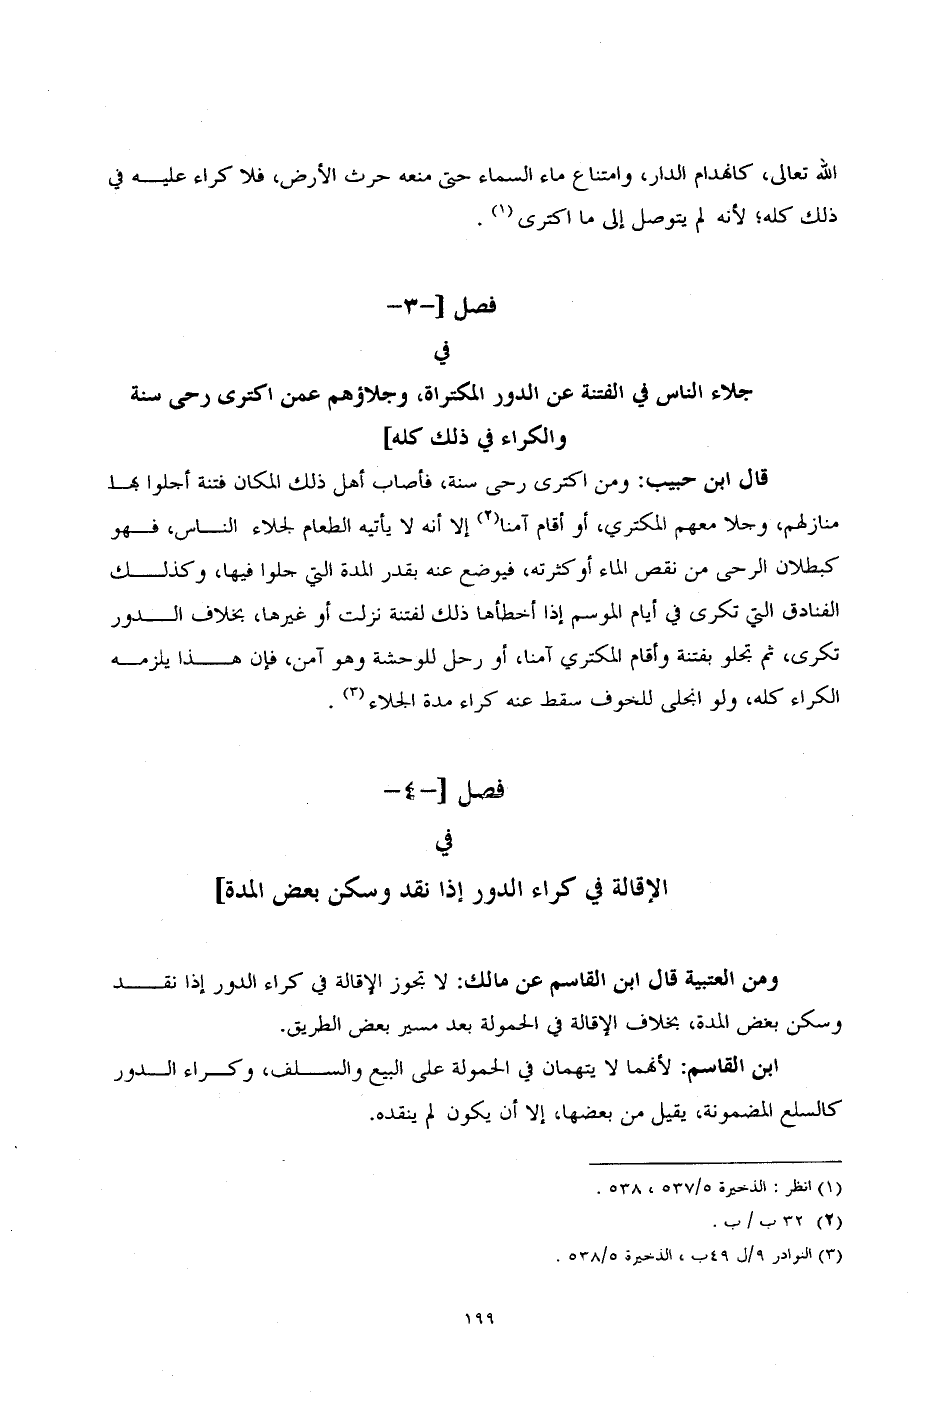 الله تعالى، كانهدام الدار، وامتناع ماء السماء حتى منعه حرث الأرض، فلا كراء عليـــه في
ذلك كله؛ لأنه لم يتوصل إلى ما اكترى (١) .
فصل [-٣-
في
جلاء الناس في الفتنة عن الدور المكتراة، وجلاؤهم عمن اكترى رحى سنة
والكراء في ذلك كله]
قال ابن حبيب: ومن اكترى رحى سنة، فأصاب أهل ذلك المكان فتنة أجلوا بهـا
منازلهم، وجلا معهم المكتري، أو أقام آمنا(٢) إلا أنه لا يأتيه الطعام لجلاء النـــاس، فـــهو
كبطلان الرحى من نقص الماء أوكثرته، فيوضع عنه بقدر المدة التي جلوا فيها، وكذلـــك
الفنادق التي تكرى في أيام الموسم إذا أخطأها ذلك لفتنة نزلت أو غيرها، بخلاف الـــدور
تكرى، ثم تجلو بفتنة وأقام المكتري آمنا، أو رحل للوحشة وهو آمن، فإن هـــذا يلزمـــه
الكراء كله، ولو انجلى للخوف سقط عنه كراء مدة الجلاء (٣) .
فصل [-٤-
في
الإقالة في كراء الدور إذا نقد وسكن بعض المدة]
ومن العتبية قال ابن القاسم عن مالك: لا تجوز الإقالة في كراء الدور إذا نقـــد
وسكن بعض المدة، بخلاف الإقالة في الحمولة بعد مسير بعض الطريق.
ابن القاسم: لأنهما لا يتهمان في الحمولة على البيع والســـلف، وكـــراء الـــدور
كالسلع المضمونة، يقيل من بعضها، إلا أن يكون لم ينقده.
(١) انظر : الذخيرة ٥٣٧/٥ ، ٥٣٨ .
(٢) ٣٢ ب / ب .
(٣) النوادر ٩/ل ٤٩ب ، الذخيرة ٥٣٨/٥ .
١٩٩